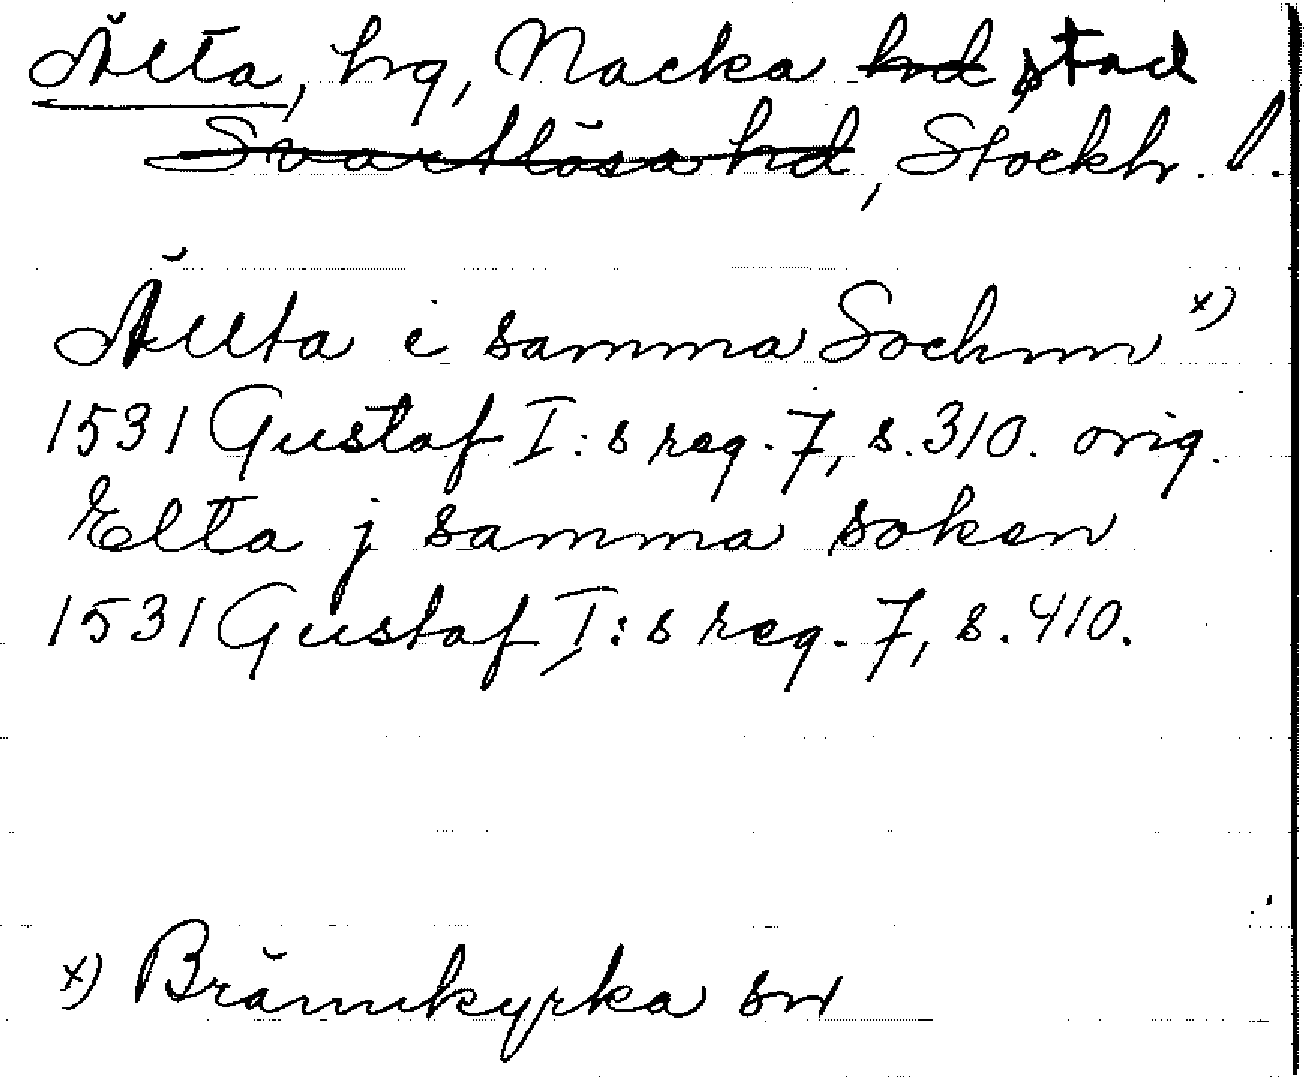 Älta, hrg, Nacka hd stad
Svartlösa hd, Stockh. l.
Ällta i samma Sochnn x)
1531 Gustaf I:s reg. 7, s. 310. orig.
Elta j samma soken
1531 Gustaf I:s reg. 7, s. 410.
x) Brännkyrka sn